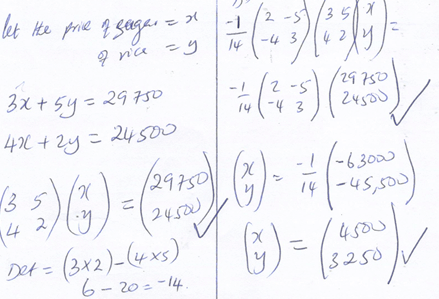 let the price of sugar = x
of rice = y
3x + 5y = 29750
4x + 2y = 24500
(3 5
4 2) (x
y) = (29750
24500)
Det = (3x2) - (4x5)
6 - 20 = -14.
-1/14 (2 -5
-4 3) (3 5
4 2) (x
y) =
-1/14 (2 -5
-4 3) (29750
24500)
(x
y) = -1/14 (-63000
-45,500)
(x
y) = (4500
3250)